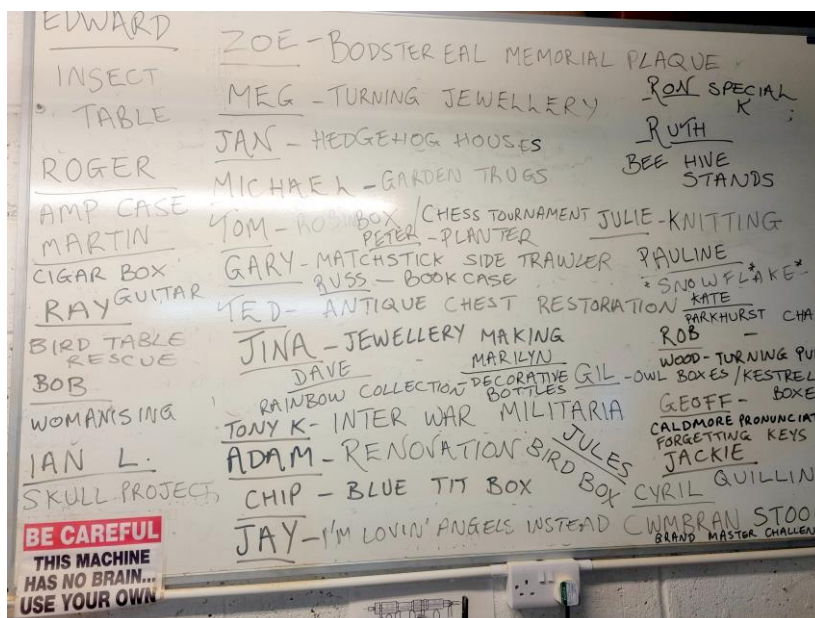 EDWARD
INSECT
TABLE
ROGER
AMP CASE
MARTIN
CIGAR BOX
GUITAR
RAY
BIRD TABLE
RESCUE
BOB
WOMANISING
IAN L.
SKULL PROJECT
ZOE - BODSTEREAL MEMORIAL PLAQUE
MEG - TURNING JEWELLERY
JAN - HEDGEHOG HOUSES
MICHAEL - GARDEN TRUGS
TOM - ROBIN BOX / CHESS TOURNAMENT
PETER - PLANTER
GARY - MATCHSTICK SIDE TRAWLER
RUSS - BOOKCASE
TED - ANTIQUE CHEST RESTORATION
JINA - JEWELLERY MAKING
DAVE
RAINBOW COLLECTION
MARILYN
DECORATIVE
BOTTLES
GIL - OWL BOXES / KESTREL
BOXE
TONY K - INTER WAR MILITARIA
ADAM - RENOVATION
JULES
BIRD BOX
CHIP - BLUE TIT BOX
JAY - I'M LOVIN' ANGELS INSTEAD
RON SPECIAL
K
RUTH
BEE HIVE
STANDS
JULIE - KNITTING
PAULINE
*SNOWFLAKE*
KATE
PARKHURST CHA
ROB -
WOOD-TURNING PU
GEOFF -
CALDMORE PRONUNCIAT
FORGETTING KEYS
JACKIE
QUILLIN
CYRIL
CWMBRAN STOO
BRAND MASTER CHALLEN
BE CAREFUL
THIS MACHINE
HAS NO BRAIN...
USE YOUR OWN